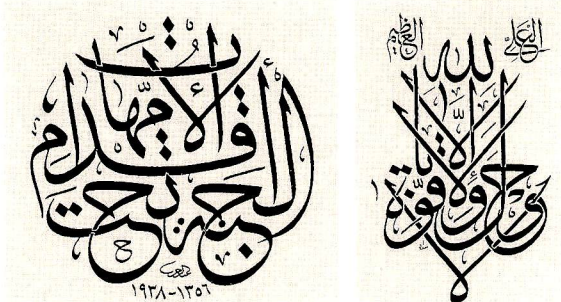 الجنة تحت أقدام الأمهات
١٩٣٨-١٣٥٦
لا حول ولا قوة إلا بالله العلي العظيم